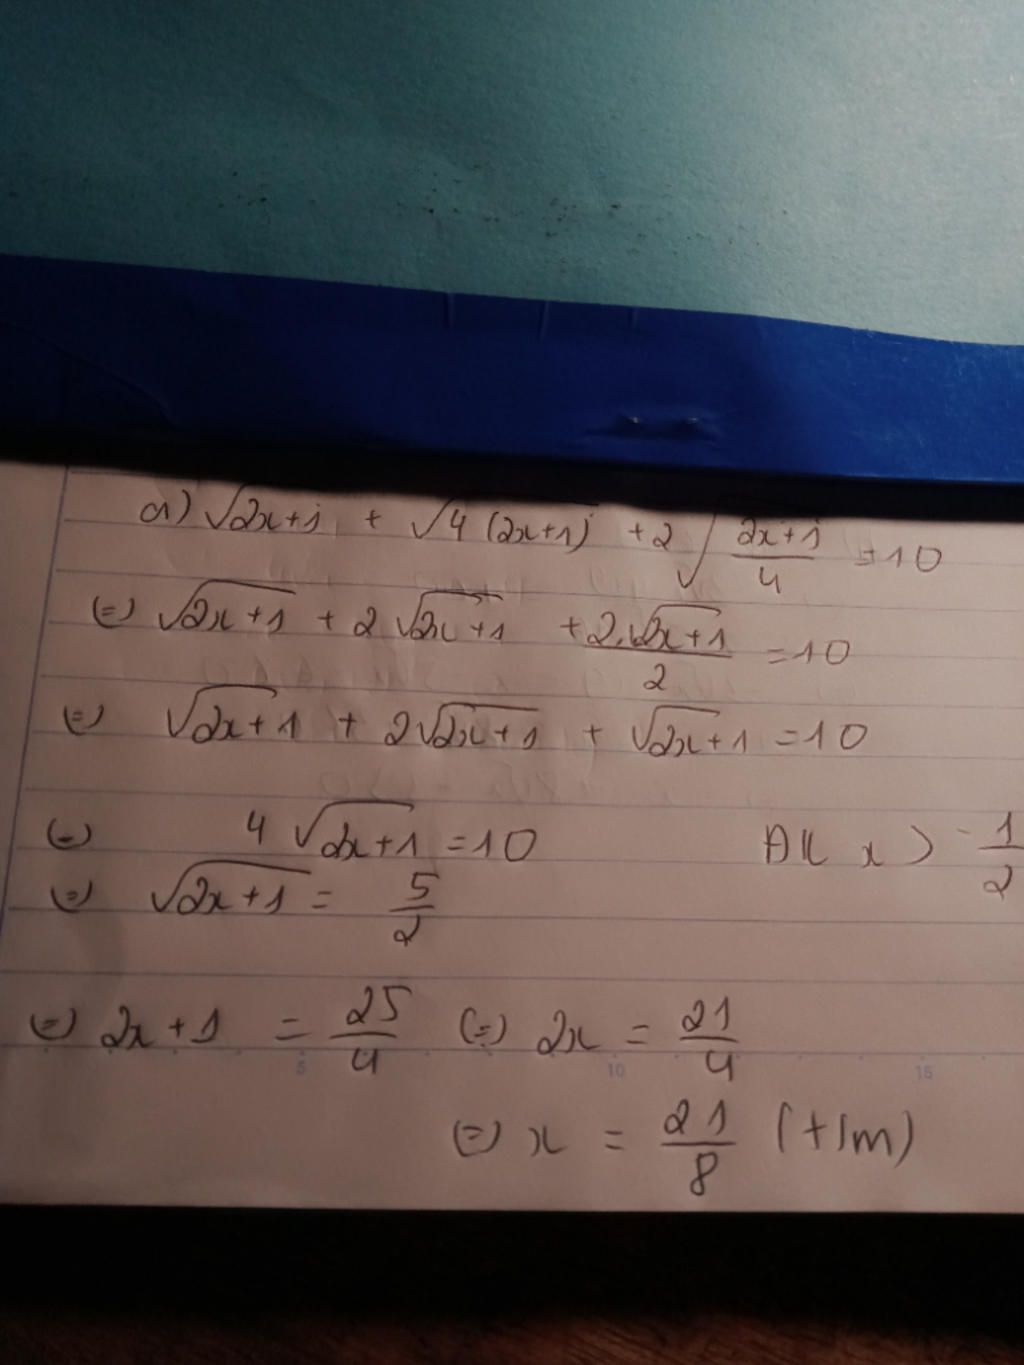 a) √2x+1 + √4(2x+1) + 2√(2x+1)/4 = 10
(=) √2x+1 + 2√2x+1 + 2.√2x+1/2 = 10
(=) √2x+1 + 2√2x+1 + √2x+1 = 10
(=) 4√2x+1 = 10 ĐK x > -1/2
(=) √2x+1 = 5/2
(=) 2x+1 = 25/4 (=) 2x = 21/4
5 10 15
(=) x = 21/8 (t/m)